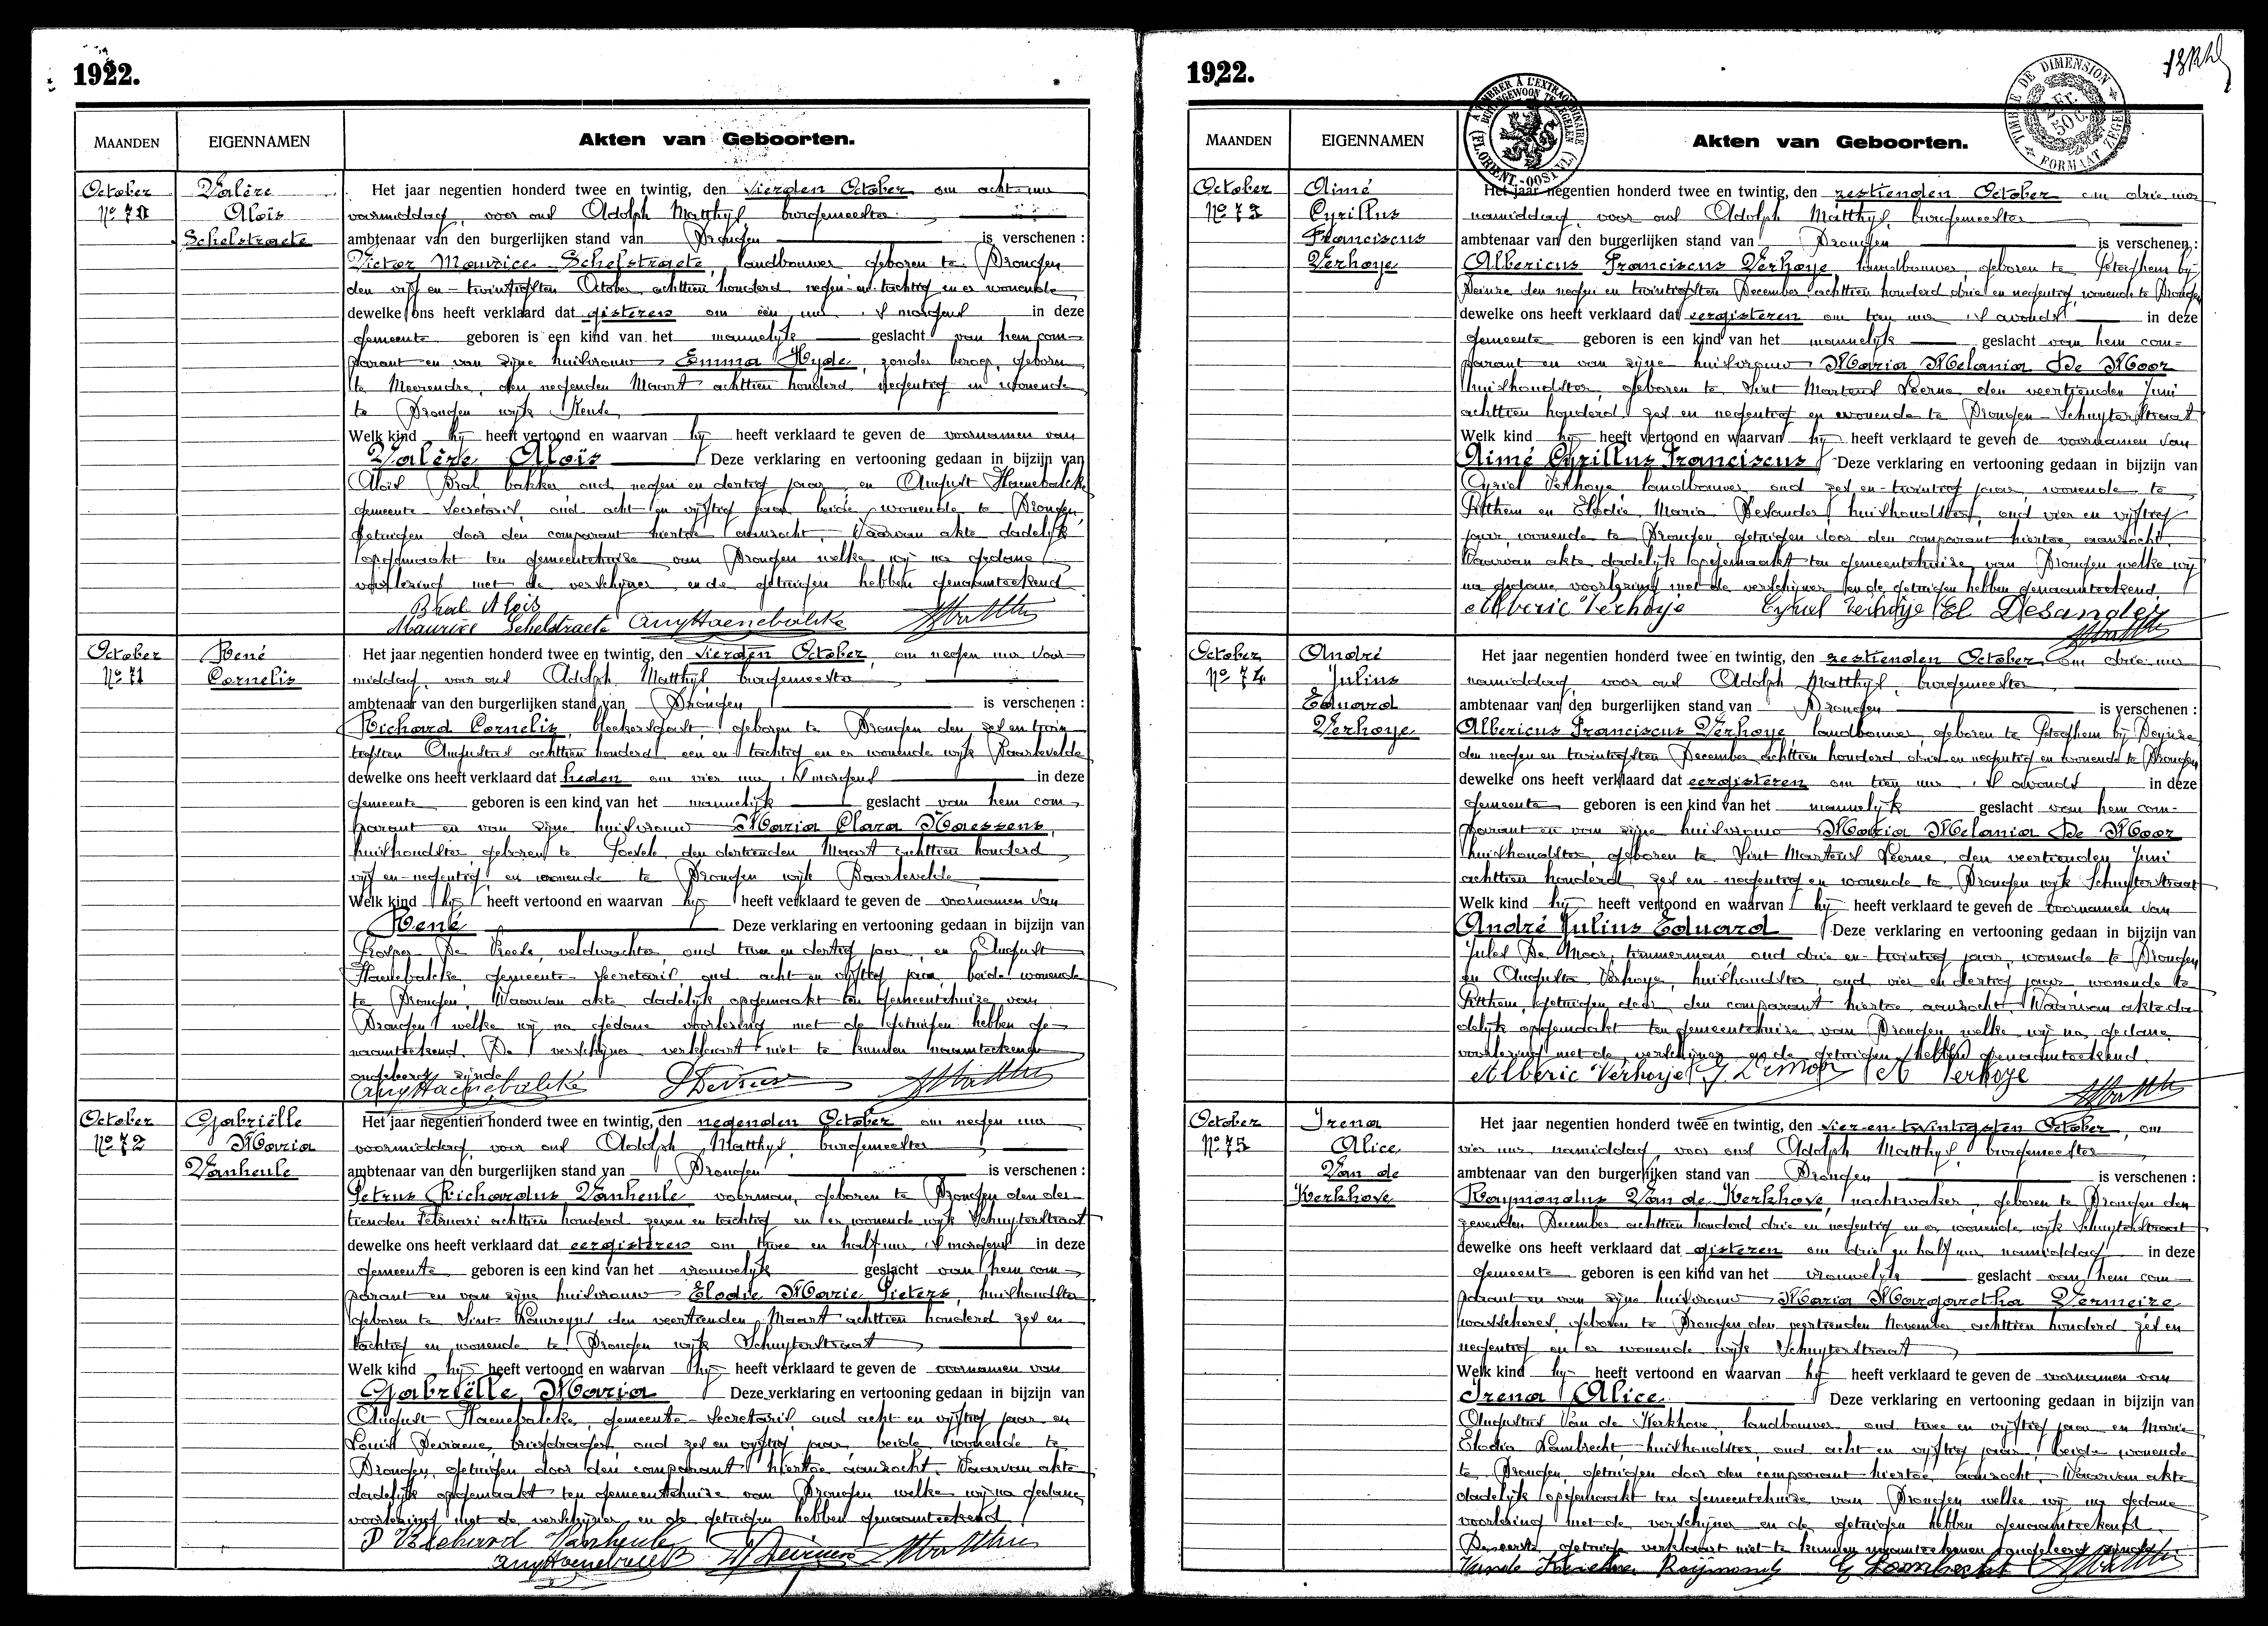 1922.
MAANDEN
EIGENNAMEN
Akten van Geboorten.
October
Nº 70
Valère
Aloïs
Schelstraete
Het jaar negentien honderd twee en twintig, den vierden October om acht uur
voormiddag, voor ons Adolph Matthys burgemeester
ambtenaar van den burgerlijken stand van Drongen is verschenen :
Victor Maurice Schelstraete, landbouwer geboren te Drongen
den vijf en-twintigsten October achttien honderd negen-en-tachtig en er wonende
dewelke ons heeft verklaard dat gisteren om een uur 's morgens in deze
gemeente geboren is een kind van het mannelijk geslacht van hem com-
parant en van zijne huisvrouw Emma Hyde, zonder beroep, geboren
te Meerendre, den negenden Maart achttien honderd negentig en wonende
te Drongen wijk Keuze
Welk kind hij heeft vertoond en waarvan hij heeft verklaard te geven de voornamen van
Valère Aloïs Deze verklaring en vertooning gedaan in bijzijn van
Aloïs Bral, bakker oud negen en dertig jaar, en August Haenebalcke
gemeente-secretaris, oud acht en vijftig jaar beide wonende te Drongen,
getuigen door den comparant hiertoe aanzocht. Waarvan akte dadelijk
opgemaakt ten gemeentehuize van Drongen welke wij na gedane
voorlezing met de verschijner en de getuigen hebben genaamteekend
Bral Aloïs
Maurice Schelstraete Aug Haenebalcke
October
Nº 71
René
Cornelis
Het jaar negentien honderd twee en twintig, den vierden October, om negen uur voor-
middag, voor ons Adolph Matthys burgemeester
ambtenaar van den burgerlijken stand van Drongen is verschenen :
Richard Cornelis, bleekersgast, geboren te Drongen den zes en twin-
tigsten Augustus achttien honderd een en tachtig en er wonende wijk Baarlevelde
dewelke ons heeft verklaard dat heden om vier uur 's morgens in deze
gemeente geboren is een kind van het mannelijk geslacht van hem com-
parant en van zijne huisvrouw Maria Clara Maessens,
huishoudster, geboren te Loevele den dertienden Maart achttien honderd
vijf en-negentig en wonende te Drongen wijk Baarlevelde
Welk kind hij heeft vertoond en waarvan hij heeft verklaard te geven de voornamen van
René Deze verklaring en vertooning gedaan in bijzijn van
Prosper De Vreese, veldwachter, oud twee en dertig jaar, en August
Haenebalcke, gemeente-secretaris, oud acht en vijftig jaar, beide wonende
te Drongen, Waarvan akte dadelijk opgemaakt ten gemeentehuize van
Drongen welke wij na gedane voorlezing met de getuigen hebben ge-
naamteekend. De verschijner verklaart niet te kunnen naamteekenen
ongeleerd zijnde
Aug Haenebalcke
October
Nº 72
Gabriëlle
Maria
Vanheule
Het jaar negentien honderd twee en twintig, den negenden October om negen uur
voormiddag, voor ons Adolph Matthys, burgemeester
ambtenaar van den burgerlijken stand van Drongen is verschenen :
Petrus Richardus Vanheule voerman, geboren te Drongen den der-
tienden Februari achttien honderd zeven en tachtig en er wonende wijk Schuyterstraat
dewelke ons heeft verklaard dat eergisteren om twee en half uur 's morgens in deze
gemeente geboren is een kind van het vrouwelijk geslacht van hem com-
parant en van zijne huisvrouw Elodie Marie Pieters, huishoudster
geboren te Sint Laureyns den veertienden Maart achttien honderd zes en
tachtig en wonende te Drongen wijk Schuyterstraat
Welk kind hij heeft vertoond en waarvan hij heeft verklaard te geven de voornamen van
Gabriëlle Maria Deze verklaring en vertooning gedaan in bijzijn van
August Haenebalcke, gemeente-secretaris, oud acht en vijftig jaar en
Louis Devriene, briefdrager, oud zes en vijftig jaar, beide wonende te
Drongen, getuigen door den comparant hiertoe aanzocht. Waarvan akte
dadelijk opgemaakt ten gemeentehuize van Drongen welke wij na gedane
voorlezing met de verschijner en de getuigen hebben genaamteekend
P Richard Vanheule
Aug Haenebalcke
1922.
TIMBRER À L'EXTRAORDINAIRE
BUITENGEWOON TE ZEGELEN
(FL. ORIENT.-OOST VL.)
TIMBRE DE DIMENSION
2 Fr.
50 C.
FORMAAT ZEGEL
MAANDEN
EIGENNAMEN
Akten van Geboorten.
October
Nº 73
Aimé
Cyrillus
Franciscus
Verhoye
Het jaar negentien honderd twee en twintig, den zestienden October om drie uur
namiddag, voor ons Adolph Matthys, burgemeester
ambtenaar van den burgerlijken stand van Drongen is verschenen :
Albericus Franciscus Verhoye, landbouwer, geboren te Peteghem bij
Deinze den negen en twintigsten December achttien honderd drie en negentig wonende te Drongen
dewelke ons heeft verklaard dat eergisteren om tien uur 's avonds in deze
gemeente geboren is een kind van het mannelijk geslacht van hem com-
parant en van zijne huisvrouw Maria Melania De Moor
huishoudster, geboren te Sint Martens Leerne den veertienden Juni
achttien honderd zes en negentig en wonende te Drongen Schuyterstraat
Welk kind hij heeft vertoond en waarvan hij heeft verklaard te geven de voornamen van
Aimé Cyrillus Franciscus Deze verklaring en vertooning gedaan in bijzijn van
Cyriel Verhoye landbouwer, oud zes en-twintig jaar, wonende te
Pitthem en Elodie Maria Desander, huishoudster, oud vier en vijftig
jaar, wonende te Drongen, getuigen door den comparant hiertoe aanzocht.
Waarvan akte dadelijk opgemaakt ten gemeentehuize van Drongen welke wij
na gedane voorlezing met de verschijner en de getuigen hebben genaamteekend.
Alberic Verhoye Cyriel Verhoye El Desander
October
Nº 74
André
Julius
Eduard
Verhoye
Het jaar negentien honderd twee en twintig, den zestienden October, om drie uur
namiddag, voor ons Adolph Matthys, burgemeester
ambtenaar van den burgerlijken stand van Drongen is verschenen :
Albericus Franciscus Verhoye, landbouwer, geboren te Peteghem bij Deynze
den negen en twintigsten December achttien honderd drie en negentig en wonende te Drongen
dewelke ons heeft verklaard dat eergisteren om tien uur 's avonds in deze
gemeente geboren is een kind van het mannelijk geslacht van hem com-
parant en van zijne huisvrouw Maria Melania De Moor
huishoudster, geboren te Sint Martens Leerne, den veertienden Juni
achttien honderd zes en-negentig en wonende te Drongen wijk Schuyterstraat
Welk kind hij heeft vertoond en waarvan hij heeft verklaard te geven de voornamen van
André Julius Eduard Deze verklaring en vertooning gedaan in bijzijn van
Jules De Moor, timmerman, oud drie en-twintig jaar, wonende te Drongen
en Augusta Verhoye, huishoudster, oud vier en dertig jaar, wonende te
Pitthem, getuigen door den comparant hiertoe aanzocht. Waarvan akte da-
delijk opgemaakt ten gemeentehuize van Drongen welke wij na gedane
voorlezing met de verschijner en de getuigen hebben genaamteekend.
Alberic Verhoye J Demoor A Verhoye
October
Nº 75
Irena
Alice
Van de
Kerkhove
Het jaar negentien honderd twee en twintig, den vier-en-twintigsten October, om
vier uur namiddag, voor ons Adolph Matthys, burgemeester
ambtenaar van den burgerlijken stand van Drongen is verschenen :
Raymondus Van de Kerkhove, nachtwaker, geboren te Drongen den
zevenden December achttien honderd drie en negentig en er wonende wijk Schuyterstraat
dewelke ons heeft verklaard dat gisteren om drie en half uur namiddag in deze
gemeente geboren is een kind van het vrouwelijk geslacht van hem com-
parant en van zijne huisvrouw Maria Margaretha Vermeire
waschheres, geboren te Drongen den veertienden November achttien honderd zes en
negentig en er wonende wijk Schuyterstraat
Welk kind hij heeft vertoond en waarvan hij heeft verklaard te geven de voornamen van
Irena Alice Deze verklaring en vertooning gedaan in bijzijn van
Augustus Van de Kerkhove, landbouwer oud twee en vijftig jaar en Marie
Elodia Lambrecht huishoudster, oud acht en vijftig jaar, beide wonende
te Drongen, getuigen door den comparant hiertoe aanzocht. Waarvan akte
dadelijk opgemaakt ten gemeentehuize van Drongen welke wij na gedane
voorlezing met de verschijner en de getuigen hebben genaamteekend.
De eerste getuige verklaart niet te kunnen naamteekenen ongeleerd zijnde
Vande Kerckhove Raÿmond E Lambrecht